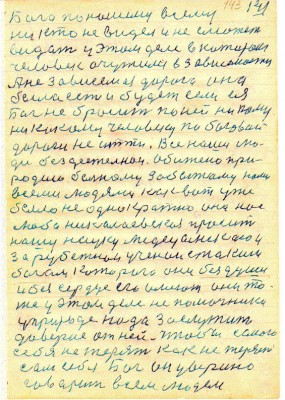 143 141
Бога по нашему всему
никто не видел и не сможет
видать у этом деле в котором
человек очутился в зависимости
А не зависемая дорога она
была есть и будет если я
Бог не бросит по ней ни кому
ни какому человеку по боговой
дороги не итти. Все наши лю
ди бездетельно обижено при
родою больному забытому нами
всеми людями как вот уже
было не однократно она нас
люба николаевская просит
нашу науку медецинскою
зарубежном ученом с таким
богам которого они без души
и без сердца его они то
же у этом деле не помочники
у природе нада заслужить
доверие от ней. чтобы самого
себя не терят как не теряет
сам себя Бог он уверино
говорит всем людям